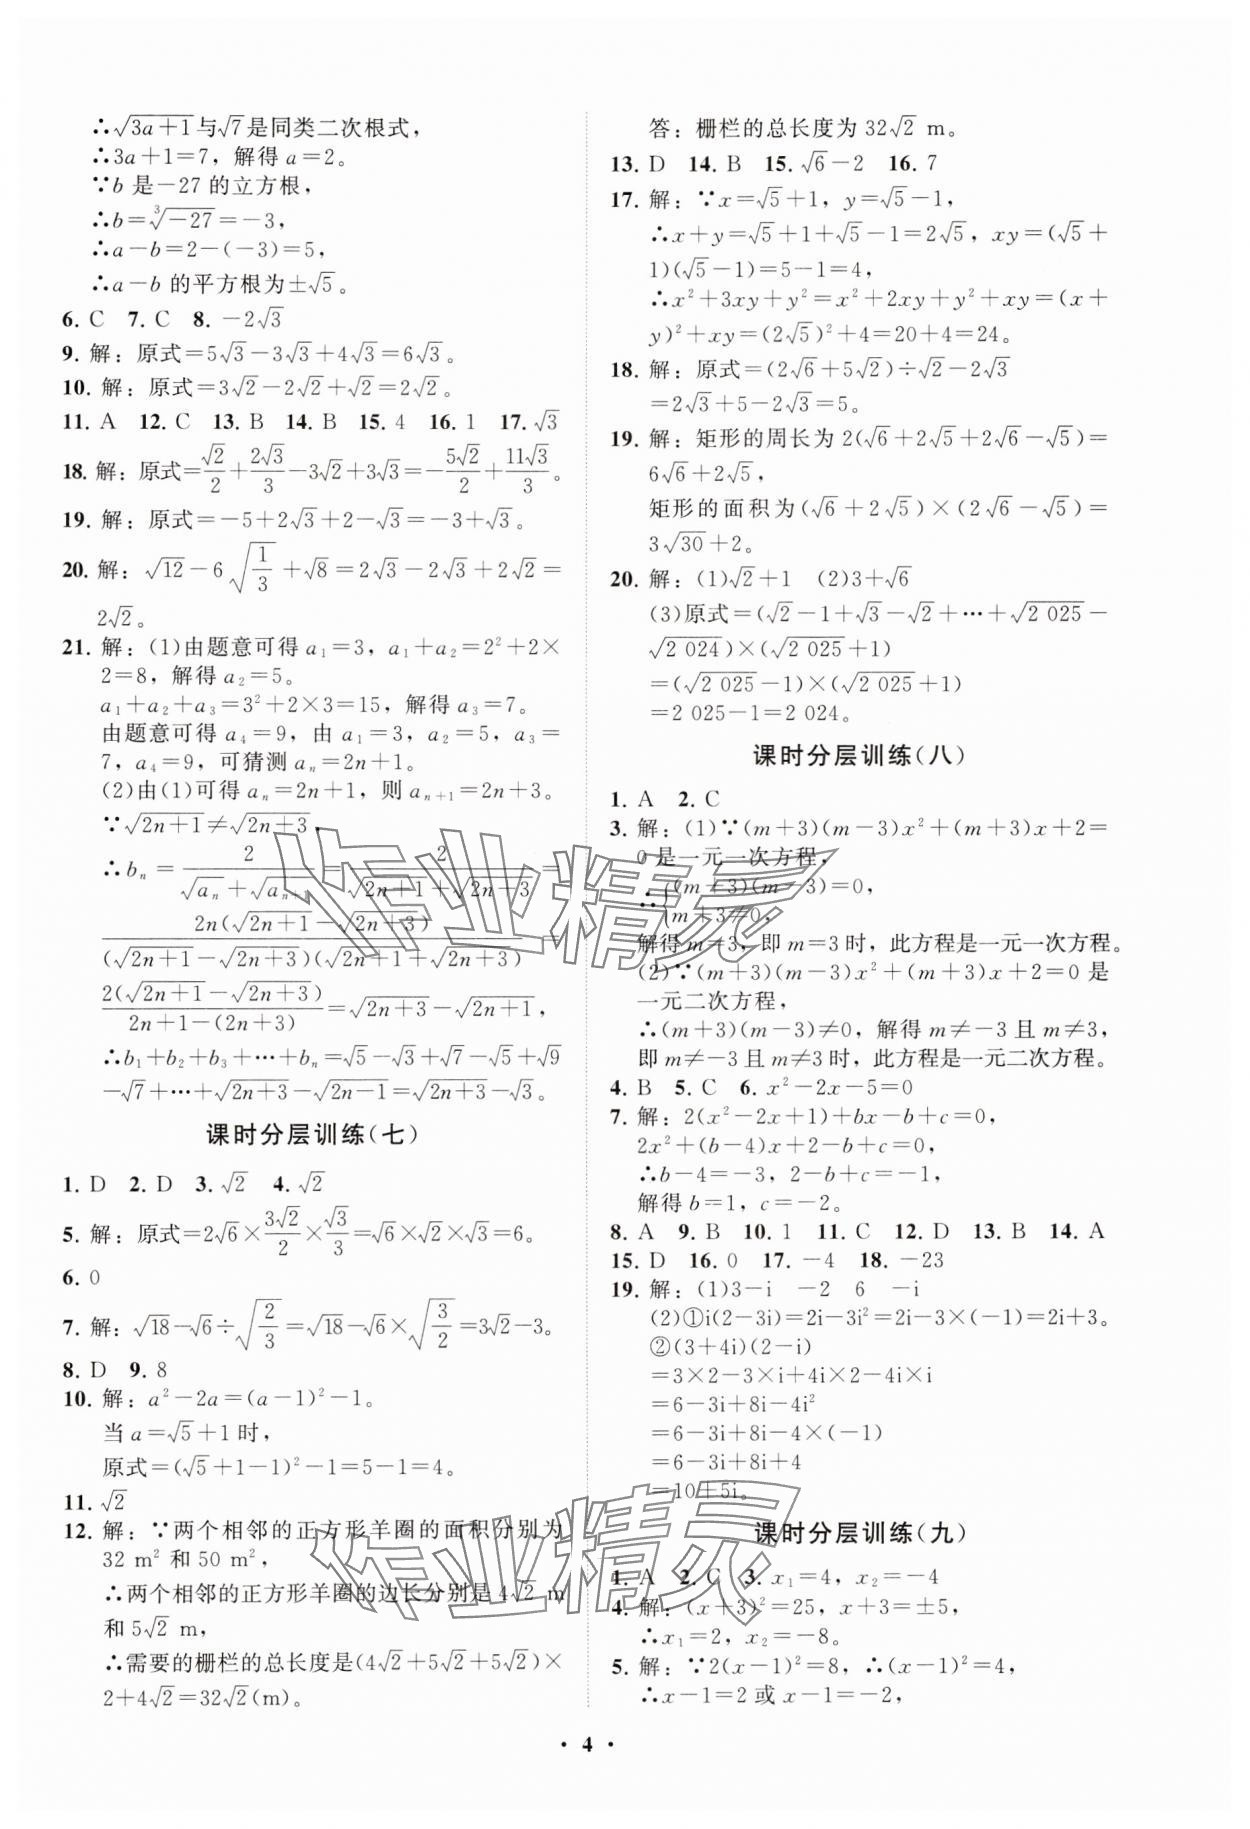 ∴√(3a+1)与√7是同类二次根式，
∴3a+1=7，解得 a=2。
∵b 是−27 的立方根，
∴b=∛(−27)=−3，
∴a−b=2−(−3)=5，
∴a−b 的平方根为±√5。
6. C 7. C 8. −2√3
9. 解：原式=5√3−3√3+4√3=6√3。
10. 解：原式=3√2−2√2+√2=2√2。
11. A 12. C 13. B 14. B 15. 4 16. 1 17. √3
18. 解：原式=√2/2+2√3/3−3√2+3√3=−5√2/2+11√3/3。
19. 解：原式=−5+2√3+2−√3=−3+√3。
20. 解：√12−6√(1/3)+√8=2√3−2√3+2√2=
2√2。
21. 解：(1)由题意可得 a₁=3，a₁+a₂=2²+2×
2=8，解得 a₂=5。
a₁+a₂+a₃=3²+2×3=15，解得 a₃=7。
由题意可得 a₄=9，由 a₁=3，a₂=5，a₃=
7，a₄=9，可猜测 aₙ=2n+1。
(2)由(1)可得 aₙ=2n+1，则 aₙ₊₁=2n+3。
∵√(2n+1)≠√(2n+3)，
∴bₙ=2/(√aₙ+√aₙ₊₁)=2/(√(2n+1)+√(2n+3))=
2n(√(2n+1)−√(2n+3))/((√(2n+1)−√(2n+3))(√(2n+1)+√(2n+3)))=
2(√(2n+1)−√(2n+3))/(2n+1−(2n+3))=√(2n+3)−√(2n+1)，
∴b₁+b₂+b₃+⋯+bₙ=√5−√3+√7−√5+√9
−√7+⋯+√(2n+3)−√(2n−1)=√(2n+3)−√3。
课时分层训练(七)
1. D 2. D 3. √2 4. √2
5. 解：原式=2√6×3√2/2×√3/3=√6×√2×√3=6。
6. 0
7. 解：√18−√6÷√(2/3)=√18−√6×√(3/2)=3√2−3。
8. D 9. 8
10. 解：a²−2a=(a−1)²−1。
当 a=√5+1 时，
原式=(√5+1−1)²−1=5−1=4。
11. √2
12. 解：∵两个相邻的正方形羊圈的面积分别为
32 m² 和 50 m²，
∴两个相邻的正方形羊圈的边长分别是 4√2 m
和 5√2 m，
∴需要的栅栏的总长度是(4√2+5√2+5√2)×
2+4√2=32√2(m)。
答：栅栏的总长度为 32√2 m。
13. D 14. B 15. √6−2 16. 7
17. 解：∵x=√5+1，y=√5−1，
∴x+y=√5+1+√5−1=2√5，xy=(√5+
1)(√5−1)=5−1=4，
∴x²+3xy+y²=x²+2xy+y²+xy=(x+
y)²+xy=(2√5)²+4=20+4=24。
18. 解：原式=(2√6+5√2)÷√2−2√3
=2√3+5−2√3=5。
19. 解：矩形的周长为 2(√6+2√5+2√6−√5)=
6√6+2√5，
矩形的面积为(√6+2√5)×(2√6−√5)=
3√30+2。
20. 解：(1)√2+1 (2)3+√6
(3)原式=(√2−1+√3−√2+⋯+√2 025−
√2 024)×(√2 025+1)
=(√2 025−1)×(√2 025+1)
=2 025−1=2 024。
课时分层训练(八)
1. A 2. C
3. 解：(1)∵(m+3)(m−3)x²+(m+3)x+2=
0 是一元一次方程，
∴{(m+3)(m−3)=0，
m+3≠0，
解得 m=3，即 m=3 时，此方程是一元一次方程。
(2)∵(m+3)(m−3)x²+(m+3)x+2=0 是
一元二次方程，
∴(m+3)(m−3)≠0，解得 m≠−3 且 m≠3，
即 m≠−3 且 m≠3 时，此方程是一元二次方程。
4. B 5. C 6. x²−2x−5=0
7. 解：2(x²−2x+1)+bx−b+c=0，
2x²+(b−4)x+2−b+c=0，
∴b−4=−3，2−b+c=−1，
解得 b=1，c=−2。
8. A 9. B 10. 1 11. C 12. D 13. B 14. A
15. D 16. 0 17. −4 18. −23
19. 解：(1)3−i −2 6 −i
(2)①i(2−3i)=2i−3i²=2i−3×(−1)=2i+3。
②(3+4i)(2−i)
=3×2−3×i+4i×2−4i×i
=6−3i+8i−4i²
=6−3i+8i−4×(−1)
=6−3i+8i+4
=10+5i。
课时分层训练(九)
1. A 2. C 3. x₁=4，x₂=−4
4. 解：(x+3)²=25，x+3=±5，
∴x₁=2，x₂=−8。
5. 解：∵2(x−1)²=8，∴(x−1)²=4，
∴x−1=2 或 x−1=−2，
· 4 ·
作业精灵
作业精灵